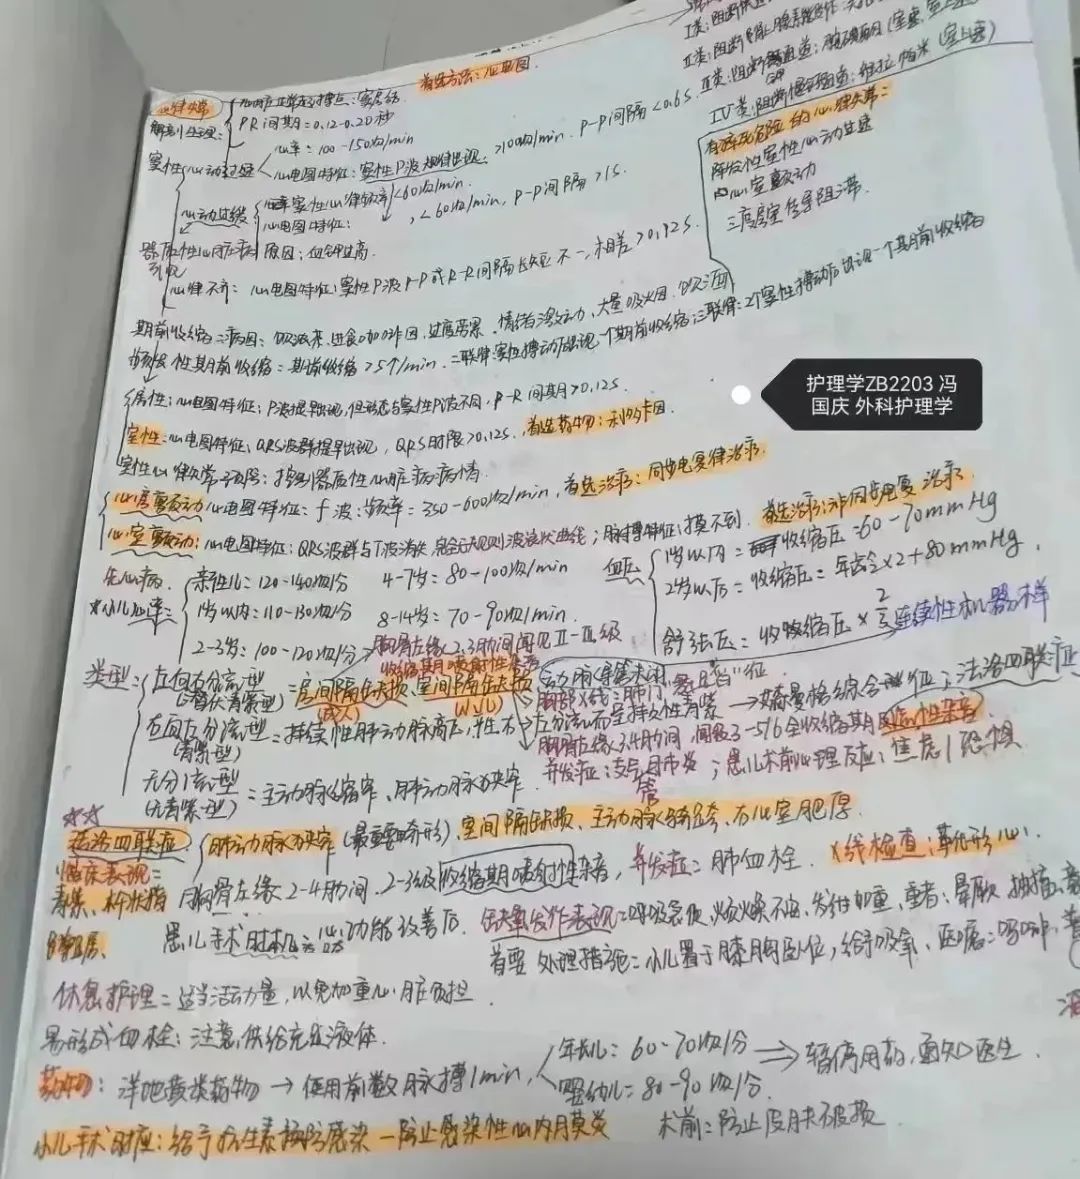 首选方法：心电图
I类：阻断快
II类：阻断
III类：阻断钾通道：胺碘酮（室速，室上速）
IV类：阻断慢钙通道：维拉帕米（室上速）
心律失常
心脏正常起搏点：窦房结
解剖生理：
PR间期=0.12-0.20秒
窦性
心动过速
心率=100-150次/min
心电图特征：窦性P波规律出现，>100次/min，P-P间隔<0.6s
心动过缓
窦性心律频率<60次/min
心电图特征：<60次/min，P-P间隔>1s
器质性心脏病
原因：血钾过高
心律不齐：心电图特征：窦性P波 P-P或R-R间隔长短不一，相差>0.12s
有猝死危险的心律失常：
阵发性室性心动过速
心室颤动
三度房室传导阻滞
期前收缩：病因：饮浓茶、进食咖啡因、过度劳累、情绪激动、大量吸烟、饮酒
频发性期前收缩：期前收缩>5个/min，二联律：窦性搏动后出现一个期前收缩；三联律：2个窦性搏动后出现一个期前收缩
房性：心电图特征：P波提早出现，但形态与窦性P波不同，P-R间期>0.12s
室性：心电图特征：QRS波群提早出现，QRS时限>0.12s，首选药物：利多卡因
室性心律失常 控制器质性心脏病病情
心房颤动 心电图特征：f波：频率=350-600次/min，首选治疗：同步电复律治疗
心室颤动：心电图特征：QRS波群与T波消失，完全无规则波浪状曲线；脉搏特征：摸不到 首选治疗：非同步电复 治疗
先心病
小儿心率=
新生儿=120-140次/分 4-7岁=80-100次/min
1岁以内=110-130次/分 8-14岁=70-90次/min
2-3岁=100-120次/分
血压
1岁以内= 收缩压=60-70mmHg
2岁以后=收缩压=年龄×2+80mmHg
舒张压=收缩压×2/3
连续性机器样
胸骨左缘2、3肋间闻及II-III级
收缩期喷射性杂音
类型=
左向右分流型
(潜伏青紫型)
=房间隔缺损、室间隔缺损
动脉导管未闭
右向左分流型
(青紫型)
法洛四联症
无分流型
(无青紫型)
=主动脉缩窄、肺动脉狭窄
持续性肺动脉高压
左分流而呈持久性青紫
胸骨左缘3、4肋间
并发症：支气管肺炎；患儿术前心理反应：焦虑/恐惧
☆☆
法洛四联症
肺动脉狭窄（最重要畸形）、室间隔缺损、主动脉骑跨、右心室肥厚
临床表现=
青紫、杵状指
蹲踞
胸骨左缘2-4肋间，2-3级收缩期喷射性杂音，并发症=肺血栓 X线检查：靴形心
患儿手术时机：心功能改善后
缺氧发作表现：呼吸急促，烦躁不安，发绀加重，重者：晕厥
首要处理措施=小儿置于膝胸卧位，给予吸氧，医嘱：吗啡
休息护理=适当活动量，以免加重心脏负担
易形成血栓：注意供给充足液体
药物：洋地黄类药物→使用前数脉搏1min
年长儿=60-70次/分
婴幼儿=80-90次/分
⇒暂停用药，通知医生
小儿手术时应：给予抗生素预防感染—防止感染性心内膜炎
术前=防止皮肤破损
护理学ZB2203 冯
国庆 外科护理学